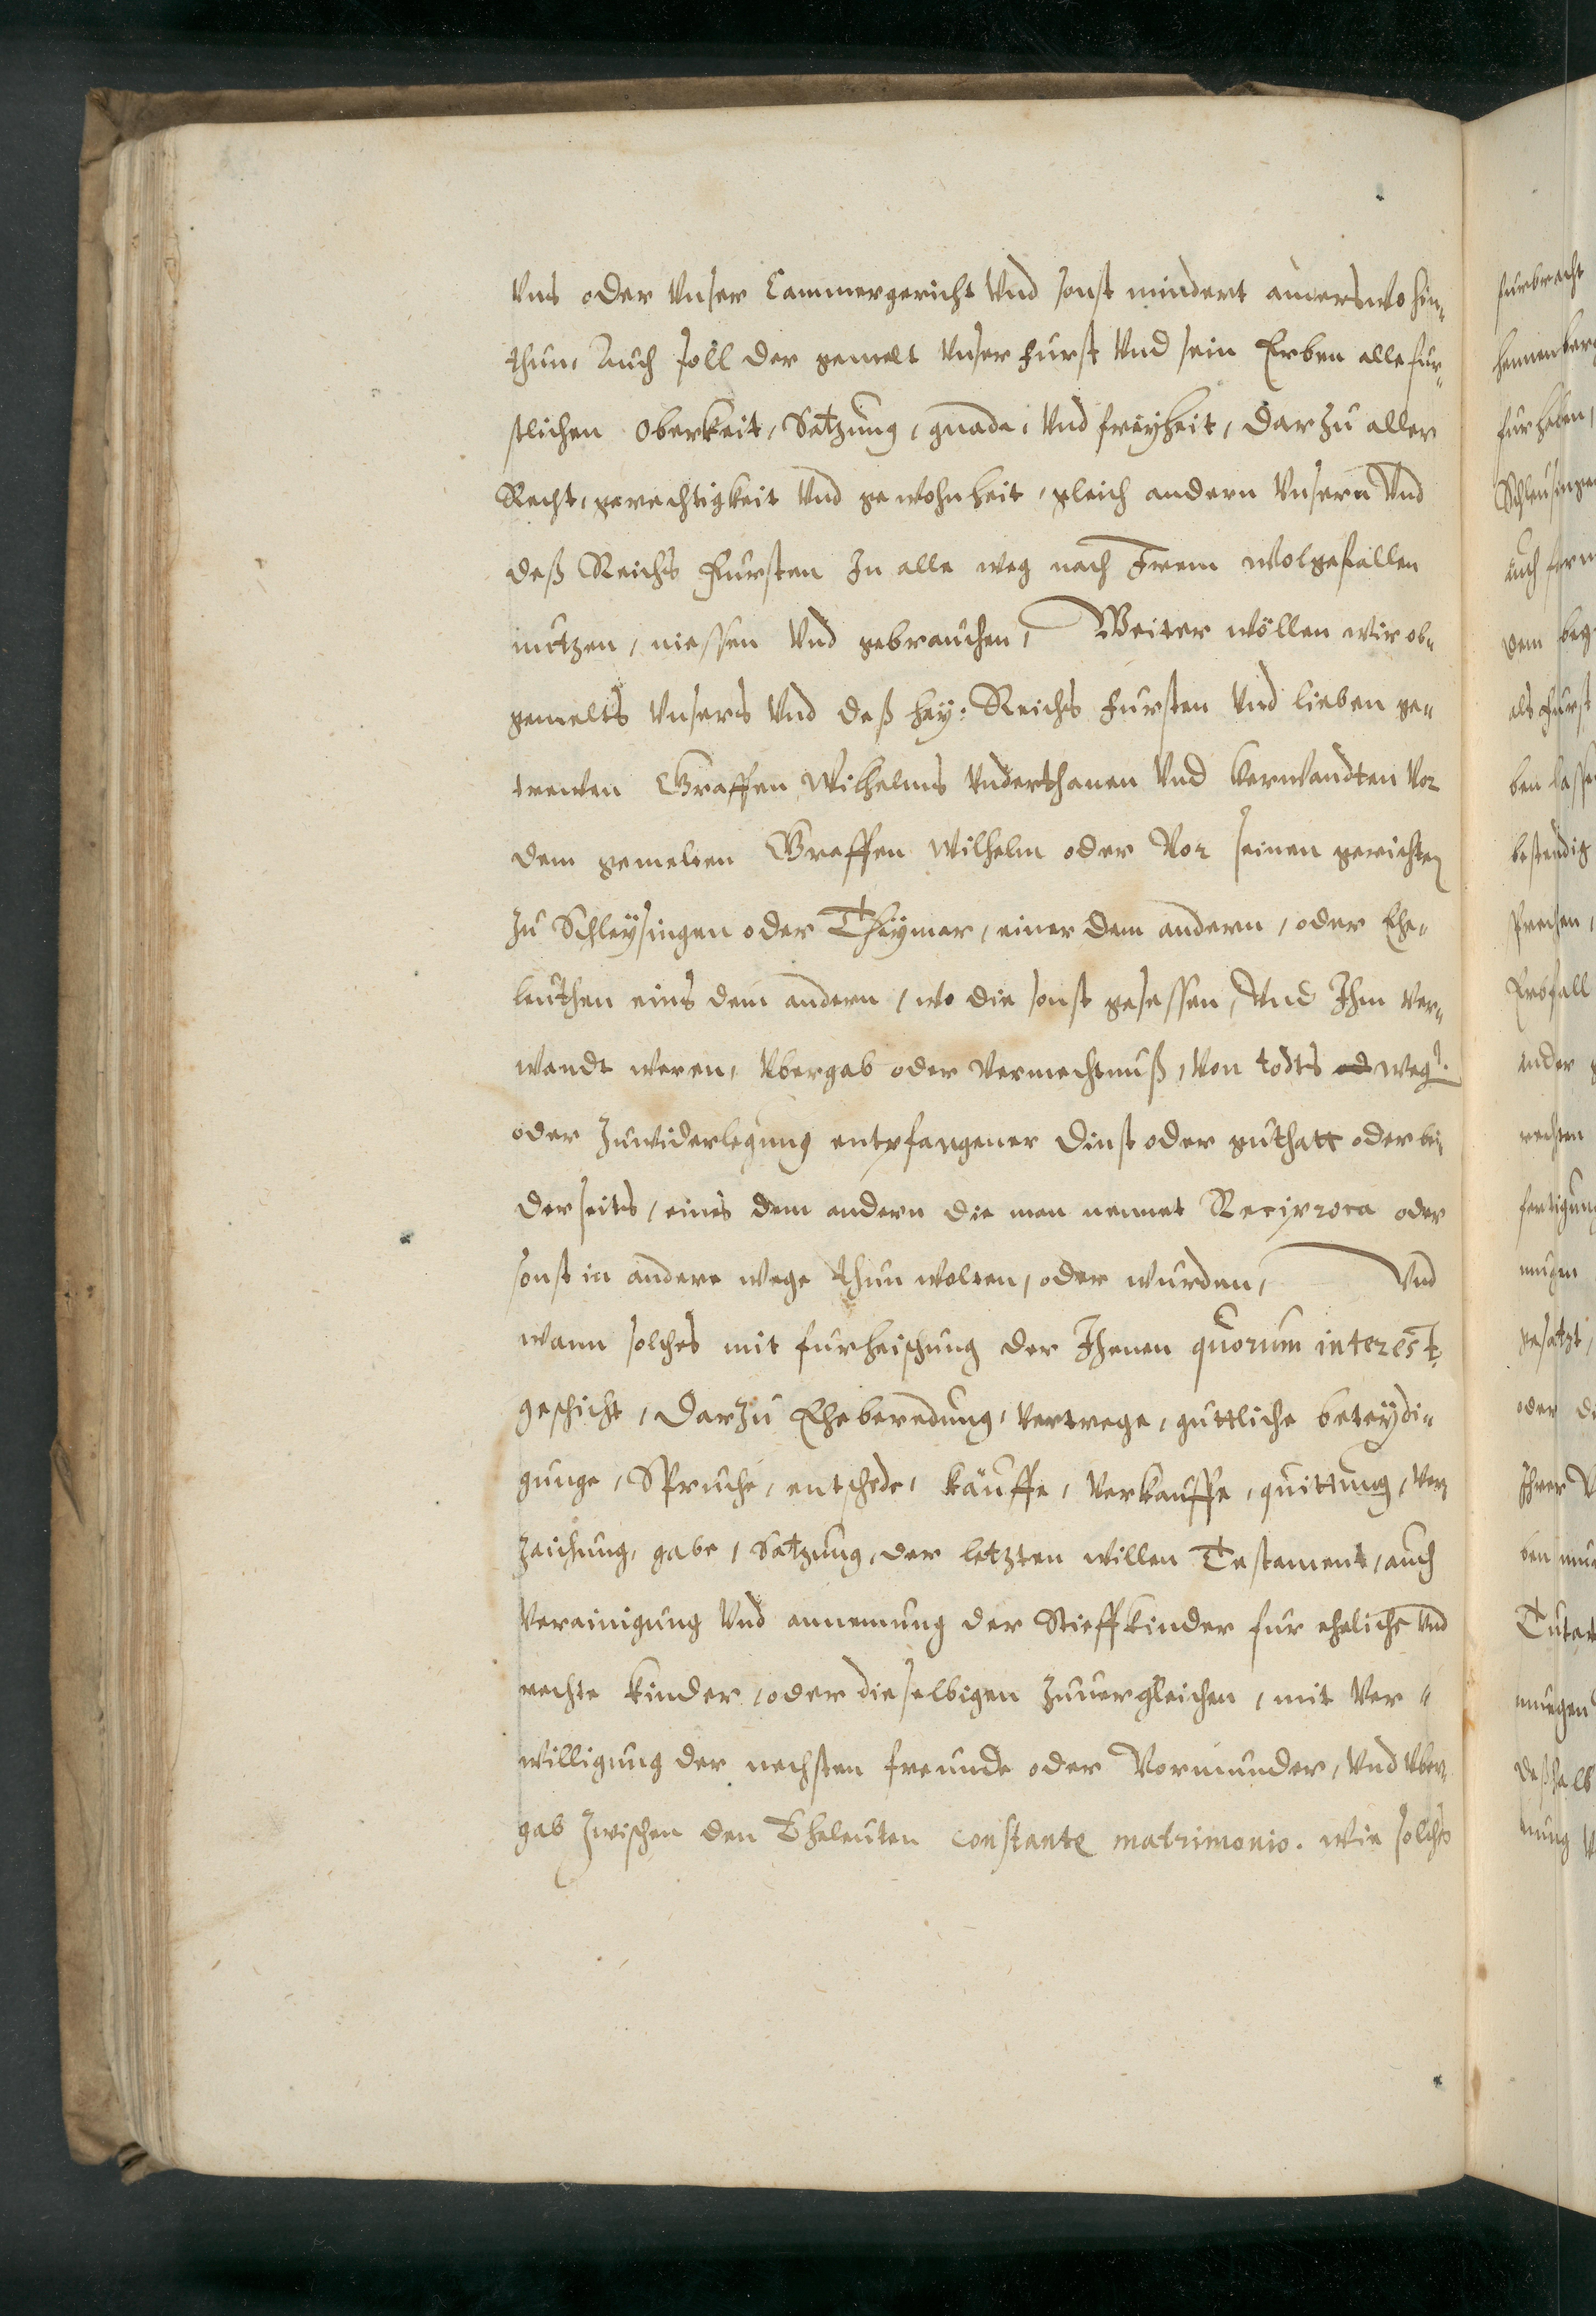 Vns oder Vnser Cammergericht Vnd sonst nindert anderswo hin¬
thun, Auch soll der gemelt Vnser Furst Vnd sein Erben alle fur¬
stlichen Oberkeit, Satzung, gnade, Vnd freyheit, darzu aller
Recht, gerechtigkeit Vnd gewohnheit, gleich andern Vnsern Vnd
deß Reichs Fursten In alle weg nach Irem wolgefallen
nutzen, niessen Vnd gebrauchen, Weiter wöllen wir ob¬
gemelts Vnsers Vnd deß hey: Reichs Fursten Vnd lieben ge¬
trewen Graffen Wilhelms Vnderthanen Vnd Verwandten Vor
dem gemelten Graffen Wilhelm oder Vor seinen gerichten
zu Schleysingen oder Theymar, einer dem andern, oder Ehe¬
leuthen eins dem andern, wo die sonst gesessen, Vnd Ihm Ver¬
wandt weren, Vbergab oder Vermechtnuß, Von todts od weg.
oder Zuwiderlegung entpfangener dinst oder gutthatt oder bei
derseits, eines dem andern die man nennet Reciproca oder
sonst in andere wege thun wolten, oder wurden, Vnd
wann solches mit furheischung der Ihenen quorum interest
geschicht, Darzu Eheberedung, Vertrege, guttliche beteydi¬
gunge, Spruche, entschede, käuffe, Verkauffe, quittung, Ver
zeichung, gabe, Satzung, der letzten willen Testament, auch
Vereinigung Vnd annemung der Stieffkinder fur eheliche Vnd
rechte kinder, oder dieselbigen Zuuergleichen, mit Ver¬
willigung der nechsten freunde oder Vormunder, Vnd Vber¬
gab zwischen den Eheleuten constante matrimonio. wie solchs
furbracht
hennenberg
fur haben,
Schleusingen
auch
dem
als Furst
ben
bestendig
sprechen,
Erbfall
ander
rechten
fertigung
mugen
gesatzt,
oder
Ihrer
ben
mugen
deßhalb